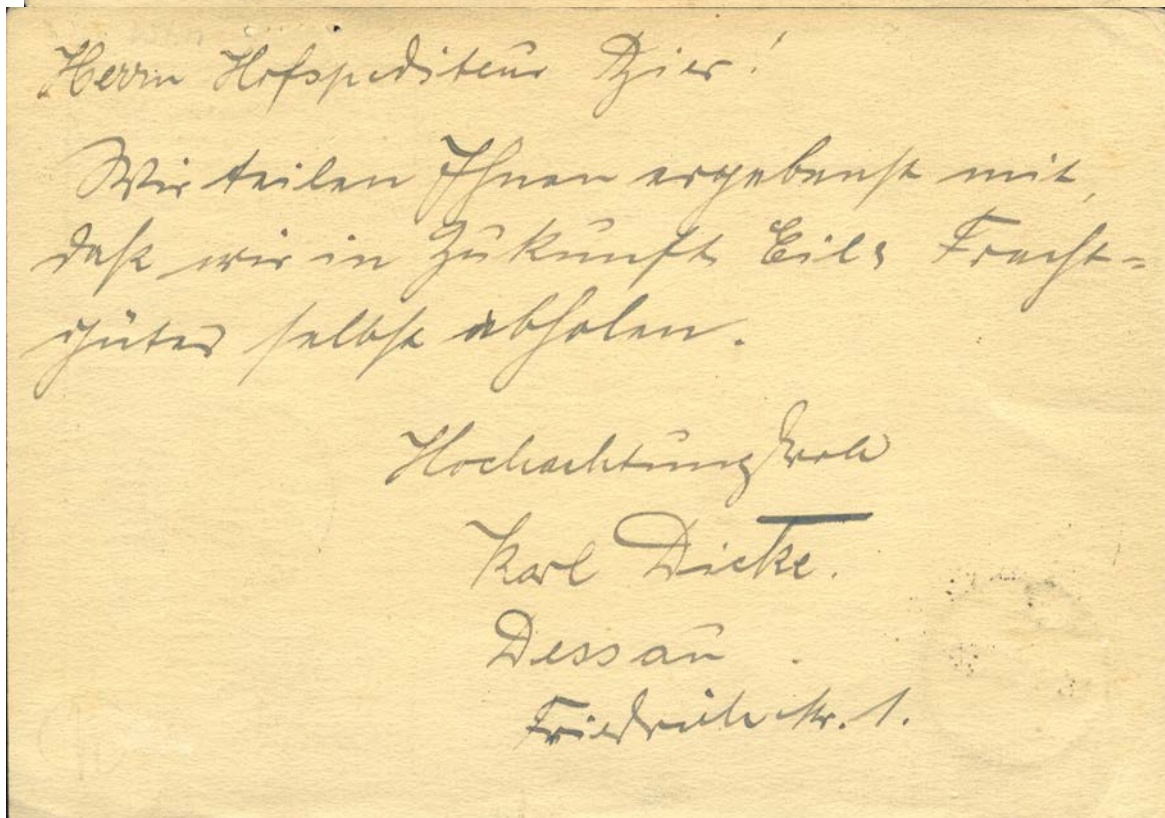 Herrn Hofspediteur
Wir teilen Ihnen ergebenst mit,
daß wir in Zukunft Eil & Fracht-
güter selbst abholen.
Hochachtungsvoll
Karl Dicke.
Dessau
Friedrichstr. 1.